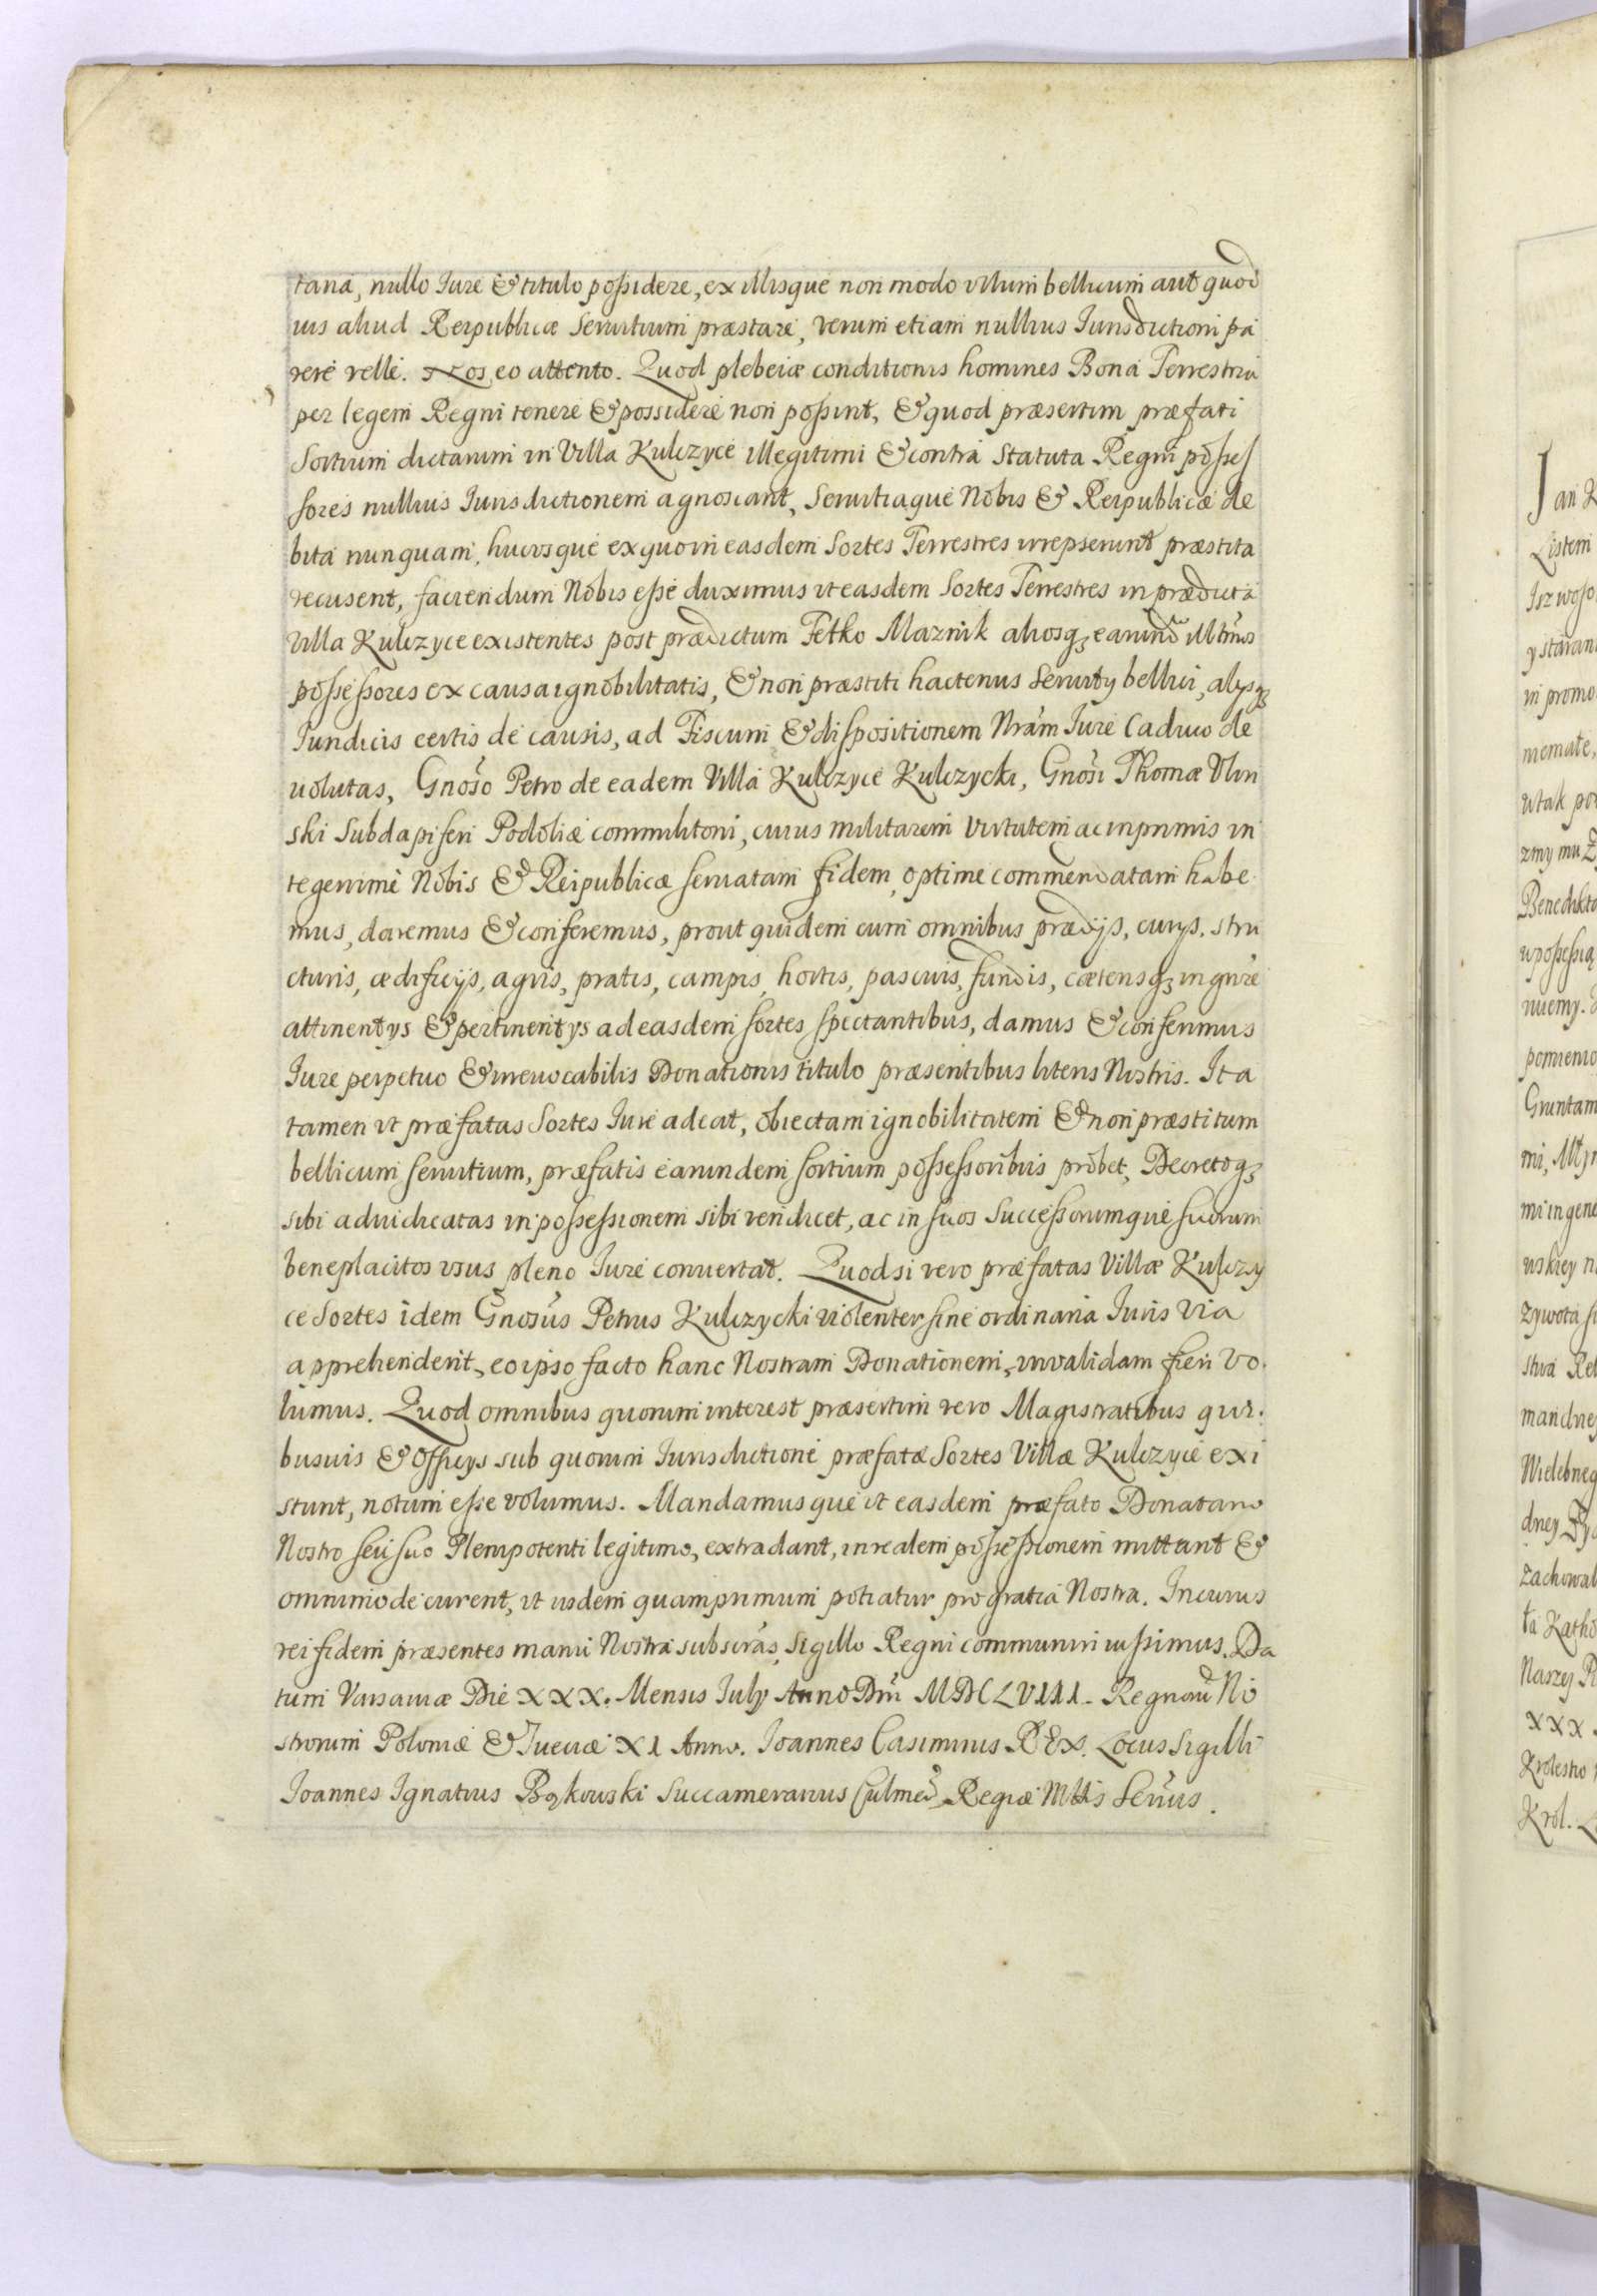 tana, nullo Iure & titulo possidere, ex illisque non modo ullum bellicum aut quod
uis aliud Reipublicæ Seruitium præstare, verum etiam nullius Iurisdictioni pa
rere velle. Nos eo attento. Quod plebeiæ conditionis homines Bona Terrestria
per legem Regni tenere & possidere non possint, & quod præsertim præfati
Sortium dictarum in Villa Kulczyce illegitimi & contra Statuta Regni posses
sores nullius Iurisdictionem agnoscant, Seruitiaque Nobis & Reipublicæ de
bita nunquam, hucusque ex quo in easdem Sortes Terrestres irrepserunt præstita
recusent, faciendum Nobis esse duximus ut easdem Sortes Terrestres in prædicta
Villa Kulczyce existentes post prædictum Fetko Maznik aliosq3 earund illtimos
possessores ex causa ignobilitatis, & non præstiti hactenus Seruitij bellici, alijsq3
Iuridicis certis de causis, ad Fiscum & dispositionem Nram Iure Caduco de
uolutas, Gnoso Petro de eadem Villa Kulczyce Kulczycki, Gnosi Thomæ Ulin
ski Subdapiferi Podoliæ commilitoni, cuius militarem Virtutem ac inprimis in
tegerrime Nobis & Reipublicæ seruatam fidem, optime commendatam habe
mus, daremus & conferemus, prout quidem cum omnibus prædijs, curijs, stru
cturis, ædificijs, agris, pratis, campis, hortis, pascuis, fundis, cæterisq3 in gnre
attinentijs & pertinentijs ad easdem sortes spectantibus, damus & conferimus
Iure perpetuo & irreuocabilis Donationis titulo præsentibus literis Nostris. Ita
tamen ut præfatas Sortes Iure adeat, obiectam ignobilitatem & non præstitum
bellicum seruitium, præfatis earundem sortium possessoribus probet, Decretoq3
sibi adiudicatas in possessionem sibi vendicet, ac in suos Successorumque suorum
beneplacitos usus pleno Iure conuertat. Quod si vero præfatas Villæ Kulczy
ce Sortes idem Gnosus Petrus Kulczycki violenter sine ordinaria Iuris via
apprehenderit, eo ipso facto hanc Nostram Donationem, inualidam fieri vo
lumus. Quod omnibus quorum interest præsertim vero Magistratibus qui
busuis & Officijs sub quorum Iurisdictione præfatæ Sortes Villæ Kulczyce exi
stunt, notum esse volumus. Mandamusque ut easdem præfato Donatario
Nostro seu suo Plenipotenti legitimo, extradant, in realem possessionem mittant &
omnimode curent, ut iisdem quamprimum potiatur pro gratia Nostra. In cuius
rei fidem præsentes manu Nostra subscras, Sigillo Regni communiri iussimus. Da
tum Varsauiæ Die XXX. Mensis Iulij Anno Dni MDCLVIII. Regnoru No
strorum Poloniæ & Sueciæ XI Anno. Ioannes Casimirus REX. Locus Sigilli
Ioannes Ignatius Bąkowski Succamerarius Culmen. Regiæ Mttis Secrius.
Jan K
Listem
Isz woso
y staran
ni promo
niemate,
zmy mu
Benedikto
uposessią
nuiemy.
pomienio
Gruntam
mi in gene
zywota
stwa
mandne
Wielebneg
dney
zachowal
ta Katho
Narzey
XXX
Krolestwo
Krol.